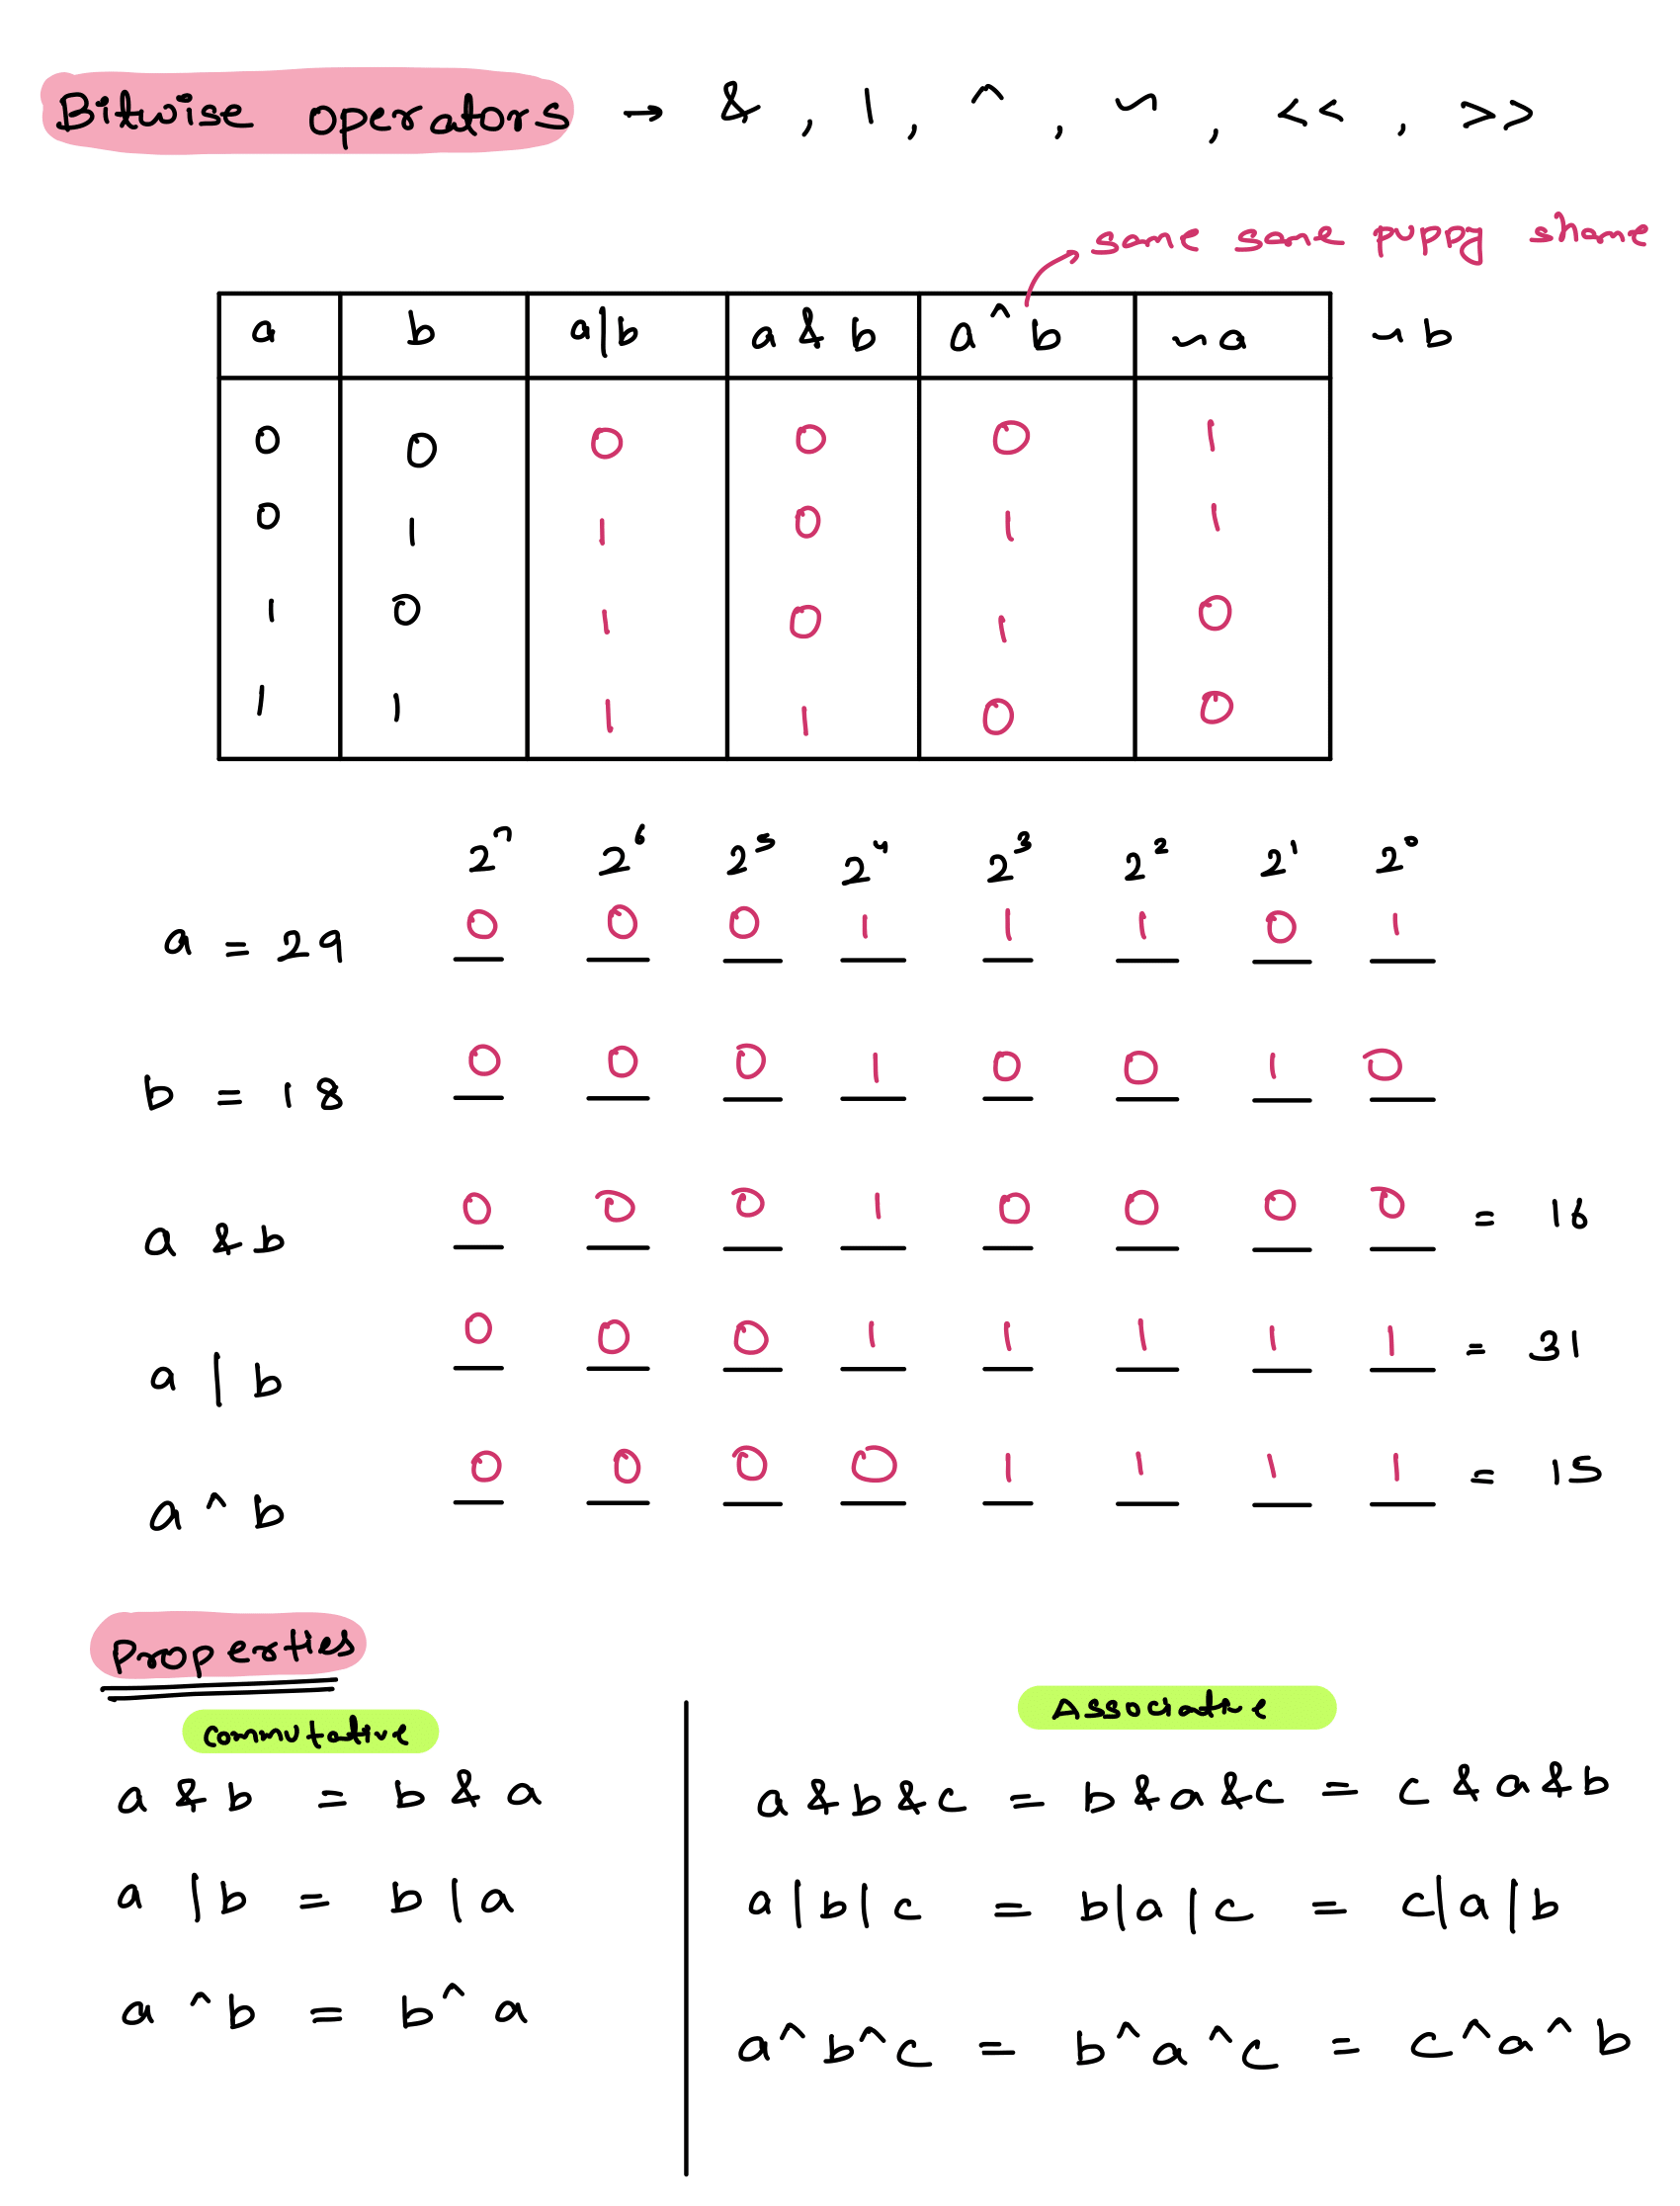 Bitwise operators → & , | , ^ , ~ , << , >>
same same puppy shame
a b a|b a & b a ^ b ~a ~b
0 0 0 0 0 1
0 1 1 0 1 1
1 0 1 0 1 0
1 1 1 1 0 0
2⁷ 2⁶ 2⁵ 2⁴ 2³ 2² 2¹ 2⁰
a = 29 0 0 0 1 1 1 0 1
b = 18 0 0 0 1 0 0 1 0
a & b 0 0 0 1 0 0 0 0 = 16
a | b 0 0 0 1 1 1 1 1 = 31
a ^ b 0 0 0 0 1 1 1 1 = 15
Properties
Commutative
a & b = b & a
a | b = b | a
a ^ b = b ^ a
Associative
a & b & c = b & a & c = c & a & b
a | b | c = b | a | c = c | a | b
a ^ b ^ c = b ^ a ^ c = c ^ a ^ b